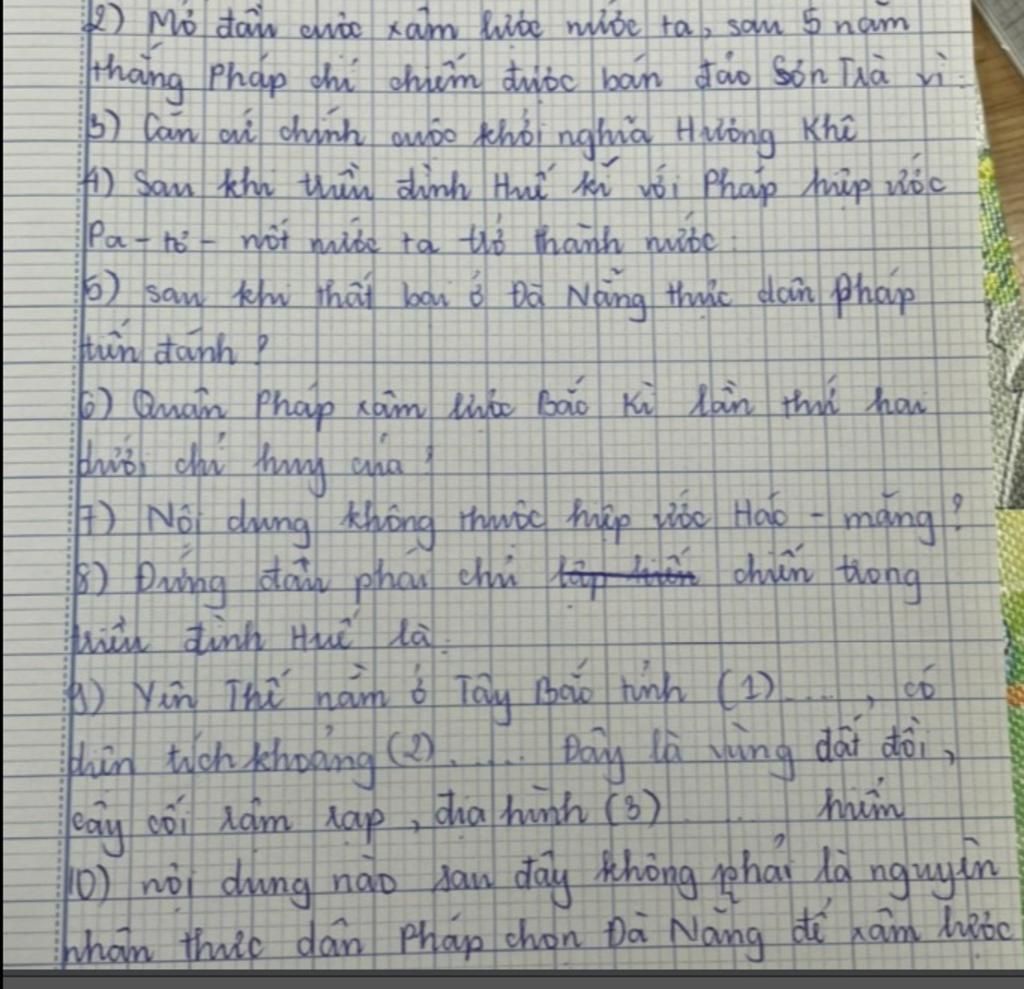 2) Mở đầu cuộc xâm lược nước ta, sau 5 năm
tháng Pháp chỉ chiếm được bán đảo Sơn Trà vì:
3) Căn cứ chính cuộc khởi nghĩa Hương Khê
4) Sau khi triều đình Huế kí với Pháp hiệp ước
Pa-tơ-nốt nước ta trở thành nước:
5) sau khi thất bại ở Đà Nẵng thực dân Pháp
tiến đánh?
6) Quân Pháp xâm lược Bắc Kì lần thứ hai
dưới chỉ huy của?
7) Nội dung không thuộc hiệp ước Hác-măng?
8) Đứng đầu phái chủ chiến trong
triều đình Huế là:
9) Yên Thế nằm ở Tây Bắc tỉnh (1)...., có
diện tích khoảng (2)...... Đây là vùng đất đồi,
cây cối rậm rạp, địa hình (3)...... hiểm
10) nội dung nào sau đây không phải là nguyên
nhân thực dân Pháp chọn Đà Nẵng để xâm lược